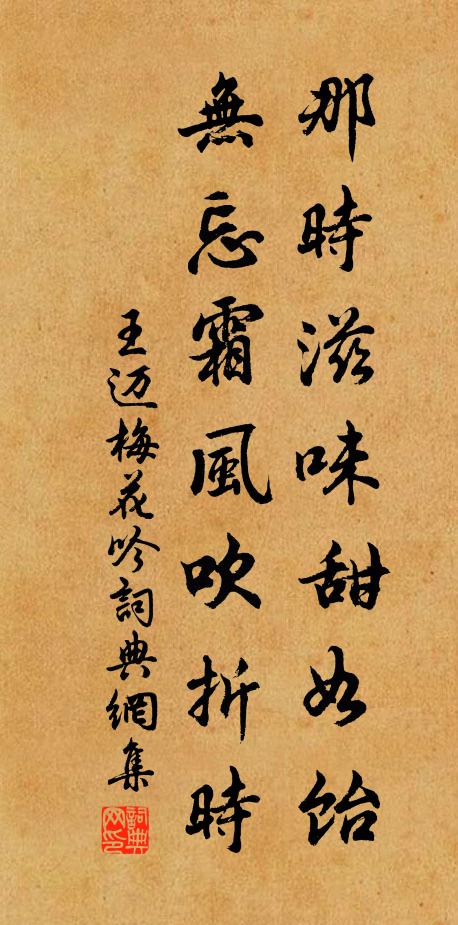 那時滋味甜如飴
無忘霜風吹折時
王迈梅花吟詞典網集
詞典网印